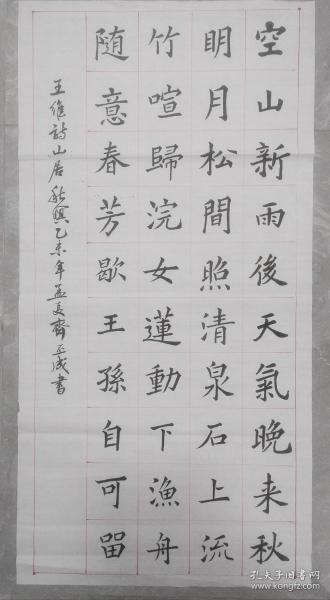 空山新雨後天氣晚来秋
明月松間照清泉石上流
竹喧歸浣女蓮動下漁舟
随意春芳歇王孫自可留
王維詩山居秋暝乙未年孟夏齊正成書
孔夫子旧书网
www.kongfz.com